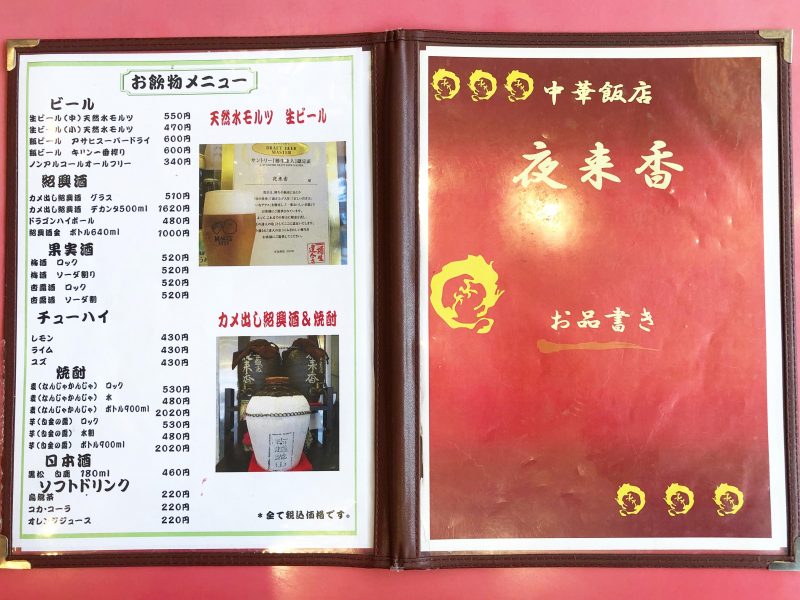 お飲物メニュー
ビール
生ビール(中)天然水モルツ 550円
生ビール(小)天然水モルツ 470円
瓶ビール アサヒスーパードライ 600円
瓶ビール キリン一番搾り 600円
ノンアルコールオールフリー 340円
紹興酒
カメ出し紹興酒 グラス 510円
カメ出し紹興酒 デカンタ500ml 1620円
ドラゴンハイボール 480円
紹興酒金 ボトル640ml 1000円
果実酒
梅酒 ロック 520円
梅酒 ソーダ割り 520円
杏露酒 ロック 520円
杏露酒 ソーダ割 520円
チューハイ
レモン 430円
ライム 430円
ユズ 430円
焼酎
麦(なんじゃかんじゃ) ロック 530円
麦(なんじゃかんじゃ) 水 480円
麦(なんじゃかんじゃ) ボトル900ml 2020円
芋(白金の露) ロック 530円
芋(白金の露) 水割 480円
芋(白金の露) ボトル900ml 2020円
日本酒
黒松 白鹿 180ml 460円
ソフトドリンク
烏龍茶 220円
コカ・コーラ 220円
オレンジジュース 220円
天然水モルツ 生ビール
DRAFT BEER
MASTER
夜来香
カメ出し紹興酒&焼酎
夜来香
来香
＊全て税込価格です。
中華飯店
夜来香
お品書き